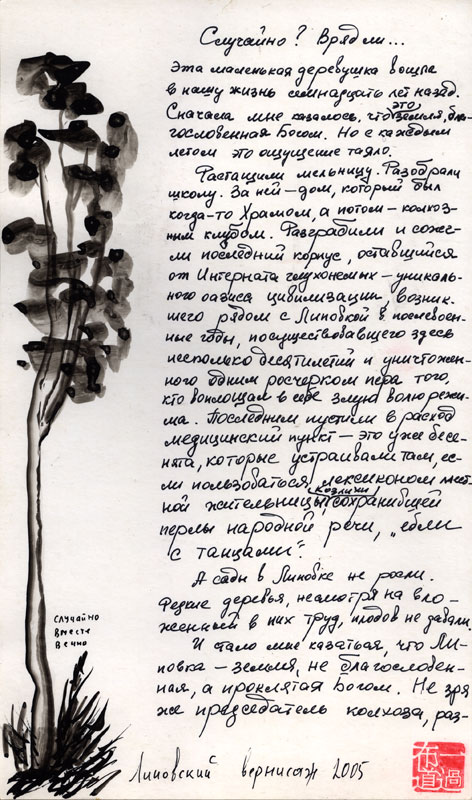 Случайно? Вряд ли...
Эта маленькая деревушка вошла
в нашу жизнь семнадцать лет назад.
Сначала мне казалось, что это земля, бла-
гословенная Богом. Но с каждым
летом это ощущение таяло.
Растащили мельницу. Разобрали
школу. За ней – дом, который был
когда-то Храмом, а потом – колхоз-
ным клубом. Разградили и сожг-
ли последний корпус, оставшийся
от Интерната глухонемых – уникаль-
ного оазиса цивилизации, возник-
шего рядом с Липовкой в послевоен-
ные годы, просуществовавшего здесь
несколько десятилетий и уничтожен-
ного одним росчерком пера того,
кто воплощал в себе злую волю режи-
ма. Последним пустили в расход
медицинский пункт – это уже бесе-
нята, которые устраивали там, ес-
ли пользоваться лексиконом мест-
ной жительницы, сохранившей
перлы народной речи, „ебли
с танцами".
А сады в Липовке не росли.
Редкие деревья, несмотря на вло-
женный в них труд, плодов не давали.
И стало мне казаться, что Ли-
повка – земля, не благословен-
ная, а проклятая Богом. Не зря
же председатель колхоза, раз-
случайно
вместе
вечно
Липовский вернисаж 2005